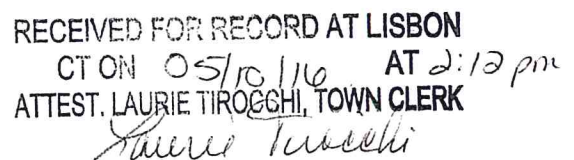 RECEIVED FOR RECORD AT LISBON
CT ON 05/10/16 AT 2:12 pm
ATTEST. LAURIE TIROCCHI, TOWN CLERK
Laurie Tirocchi